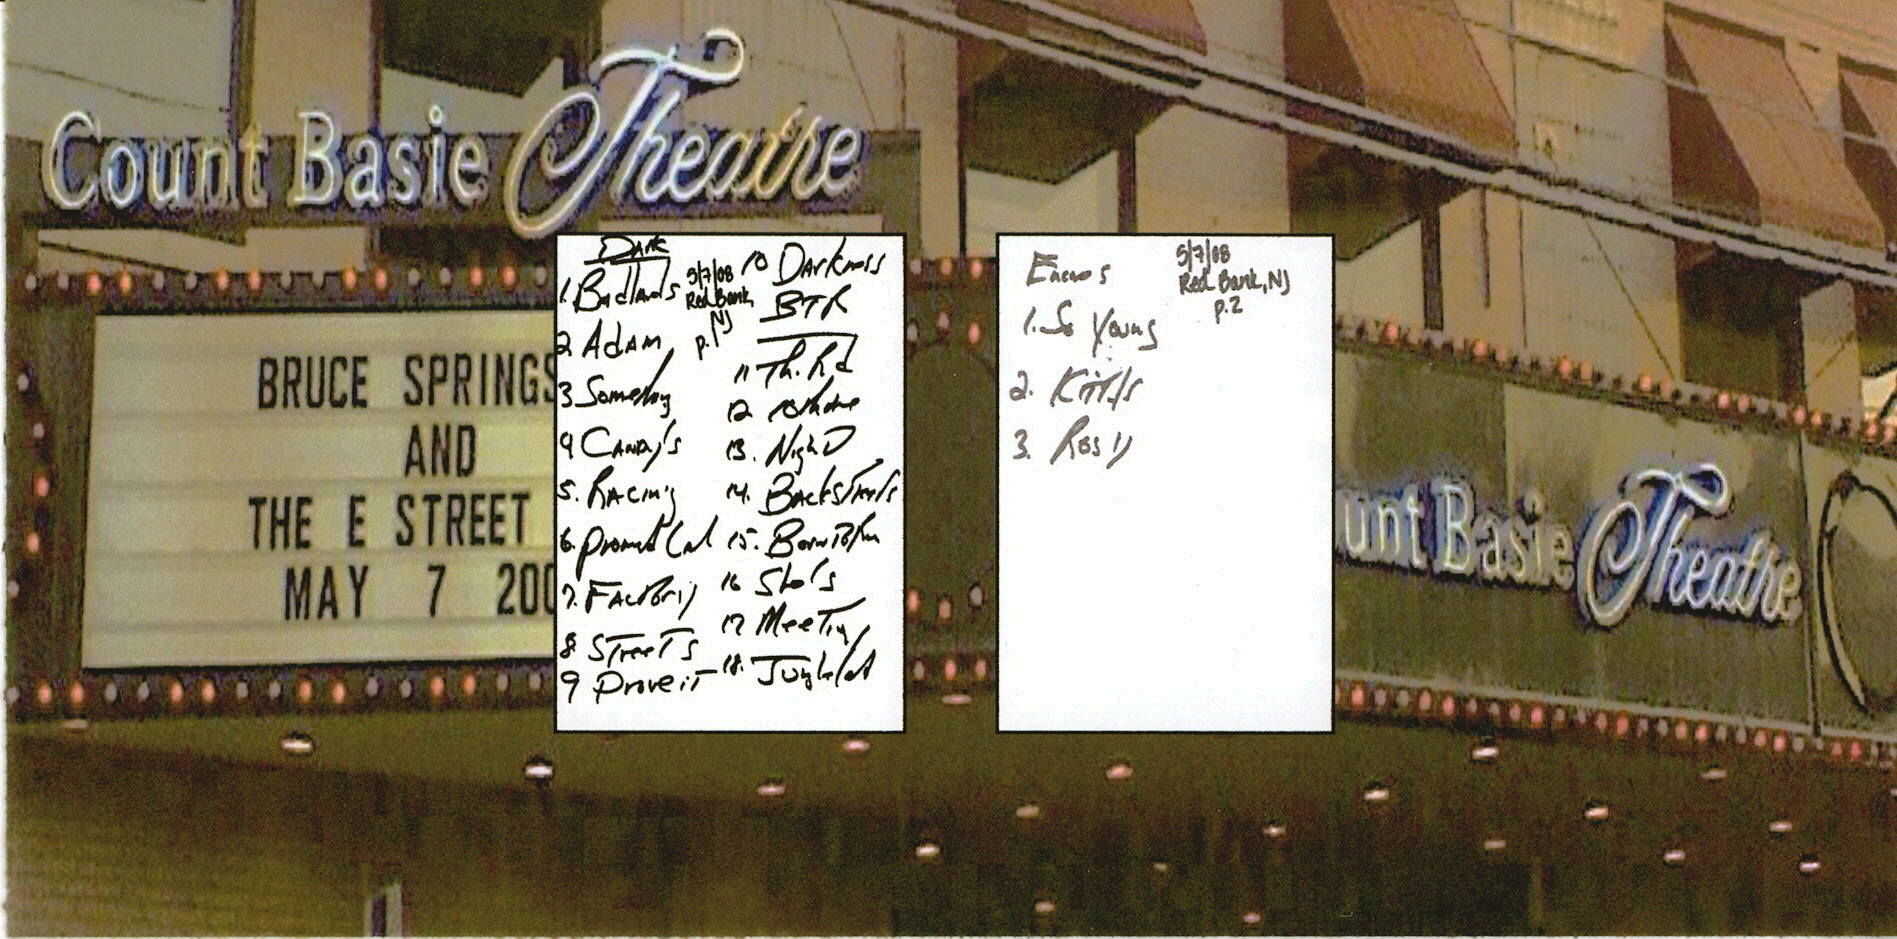 Count Basie Theatre
BRUCE SPRINGS
AND
THE E STREET
MAY 7 200
DARK
1. Badlands
5/7/08
Red Bank,
NJ
p.1
2 ADAM
3 Someday
4 CANDY'S
5. RACING
6. Promised Land
7. FACTORY
8 STREETS
9 Prove iT
10 Darkness
BTR
11 Th. Rd
12 10th Ave
13. NighT
14. BACKSTreeTs
15. Born To Run
16 She's
17 MeeTing
18. Jungleland
Encores
5/7/08
Red Bank, NJ
p.2
1. So Young
2. KiTTy's
3. Rosy
unt Basie Theatre